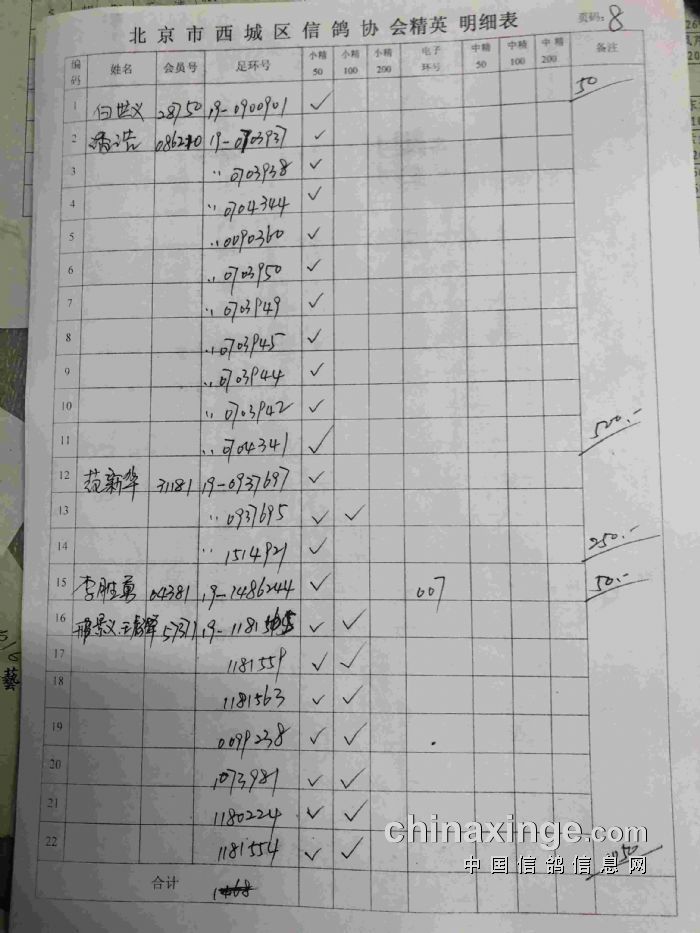 页码: 8
北京市西城区信鸽协会精英 明细表
编码 姓名 会员号 足环号 小精50 小精100 小精200 电子环号 中精50 中精100 中精200 备注
1 白世义 28750 19-0900901 ✓ 50
2 浩 086210 19-0703937 ✓
3 〃 0703938 ✓
4 〃 0704344 ✓
5 〃 0090360 ✓
6 〃 0703950 ✓
7 〃 0703949 ✓
8 〃 0703945 ✓
9 〃 0703944 ✓
10 〃 0703942 ✓
11 〃 0704341 ✓ 500.-
12 范新华 31181 19-0937697 ✓
13 〃 0937695 ✓ ✓
14 〃 1514921 ✓ 250.-
15 李胜勇 04381 19-1486244 ✓ 007 50.-
16 景义.王 19-1181565 ✓ ✓
17 1181559 ✓ ✓
18 1181563 ✓ ✓
19 0099238 ✓ ✓
20 1073981 ✓ ✓
21 1180224 ✓ ✓
22 1181554 ✓ ✓
合计
chinaxinge.com
中国信鸽信息网
藝